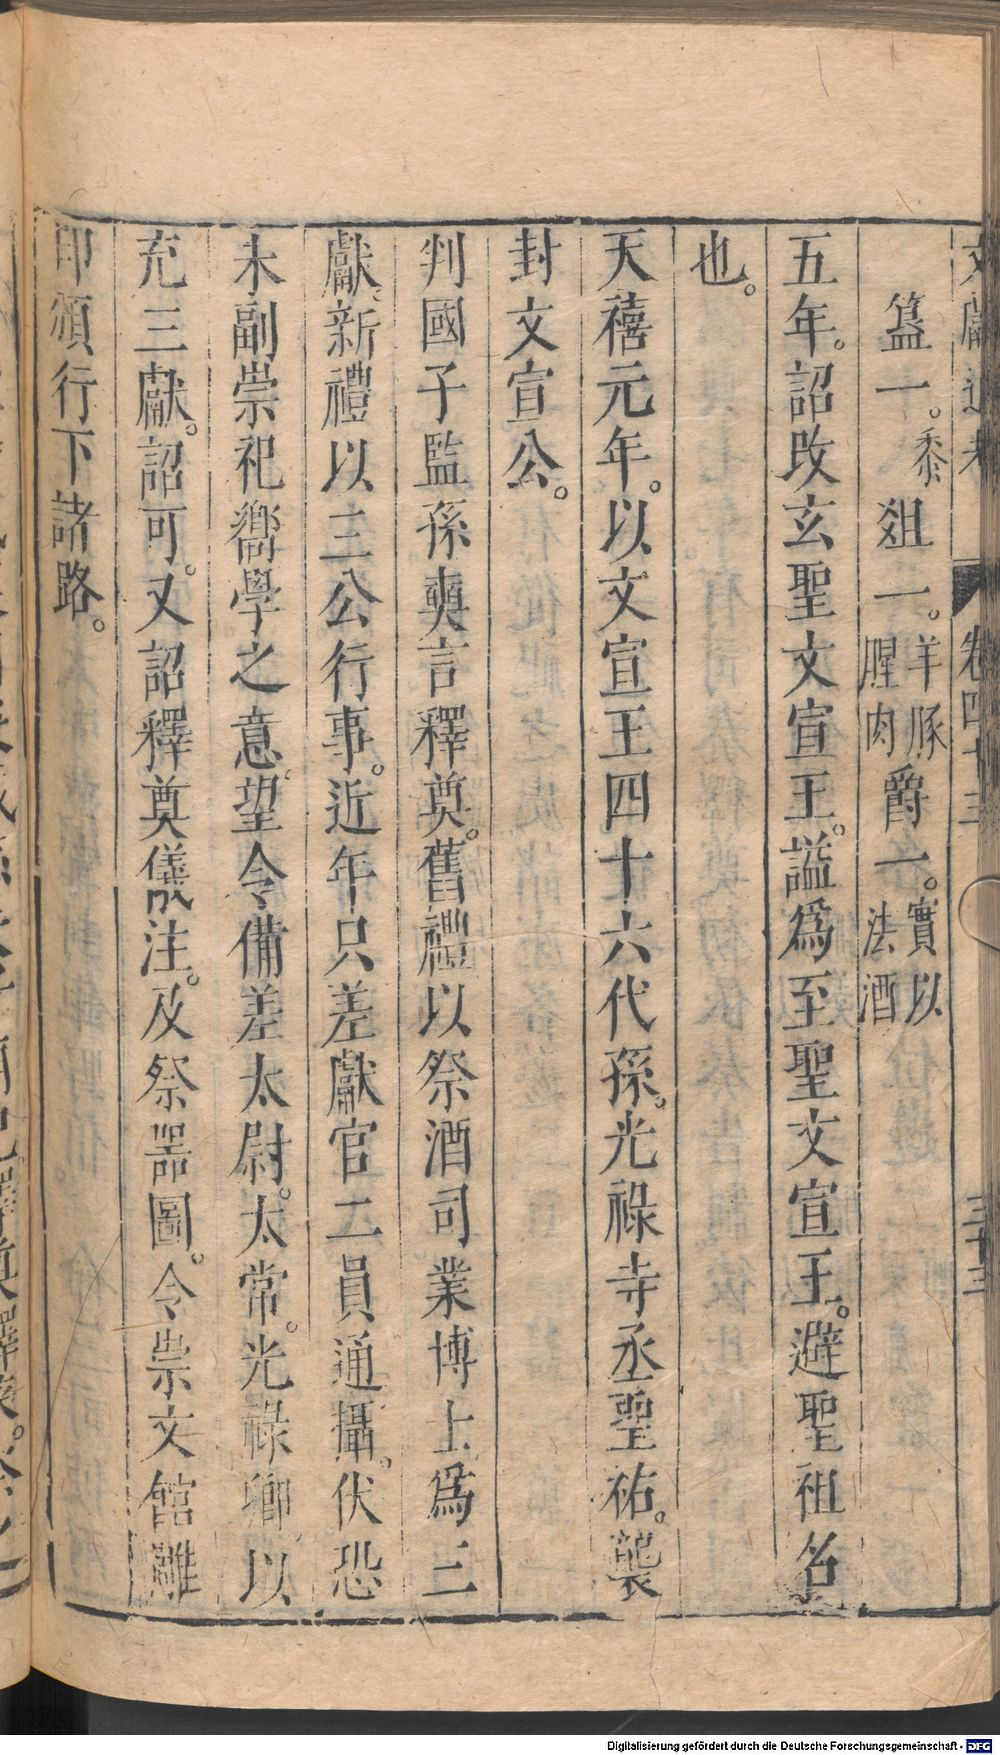 文獻通考 卷四十三 三十三
簋一。黍 俎一。羊豚腥肉 爵一。實以法酒
五年。詔改玄聖文宣王。謚爲至聖文宣王。避聖祖名
也。
天禧元年。以文宣王四十六代孫。光祿寺丞聖祐。襲
封文宣公。
判國子監孫奭言釋奠。舊禮以祭酒司業博士爲三
獻。新禮以三公行事。近年只差獻官二員通攝。伏恐
未副崇祀嚮學之意。望令備差太尉。太常。光祿卿以
充三獻。詔可。又詔釋奠儀注。及祭器圖。令崇文館雕
印頒行下諸路。
Digitalisierung gefördert durch die Deutsche Forschungsgemeinschaft - DFG